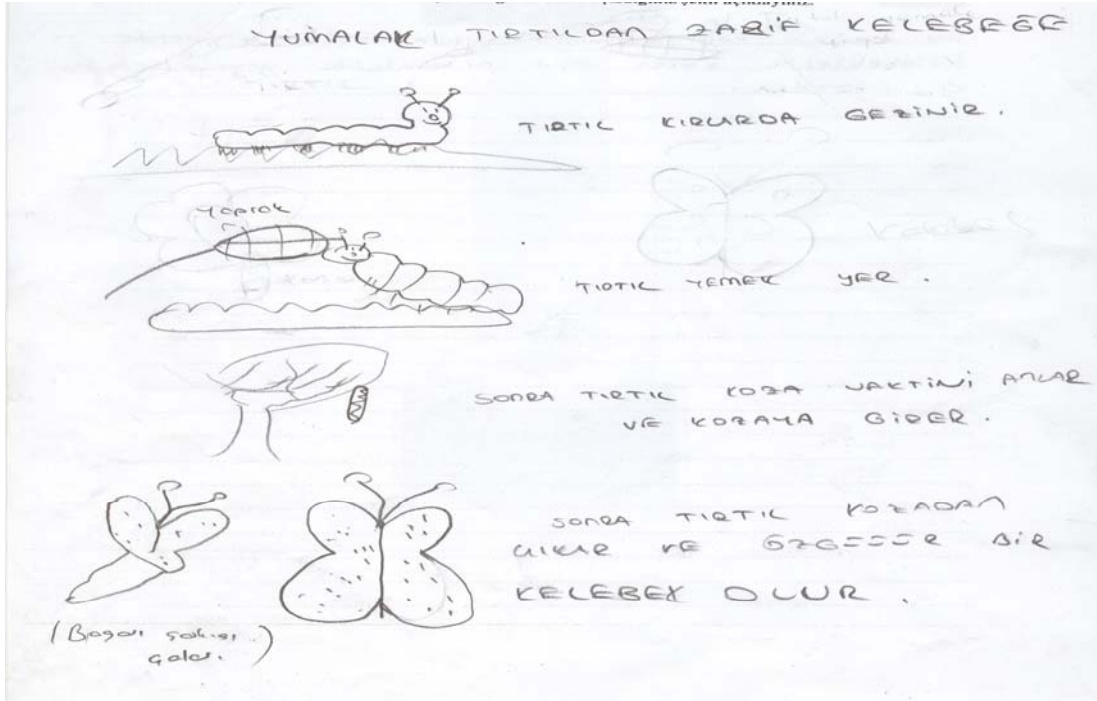 YUMALAK TIRTILDAN ZARİF KELEBEĞE
TIRTIL KIRLARDA GEZİNİR.
Yaprak
TIRTIL YEMEK YER.
SONRA TIRTIL KOZA VAKTİNİ ANLAR
VE KOZAYA GİRER.
SONRA TIRTIL KOZADAN
ÇIKAR VE ÖZG====R BİR
KELEBEK OLUR.
(Başarı şarkısı
çalar.)